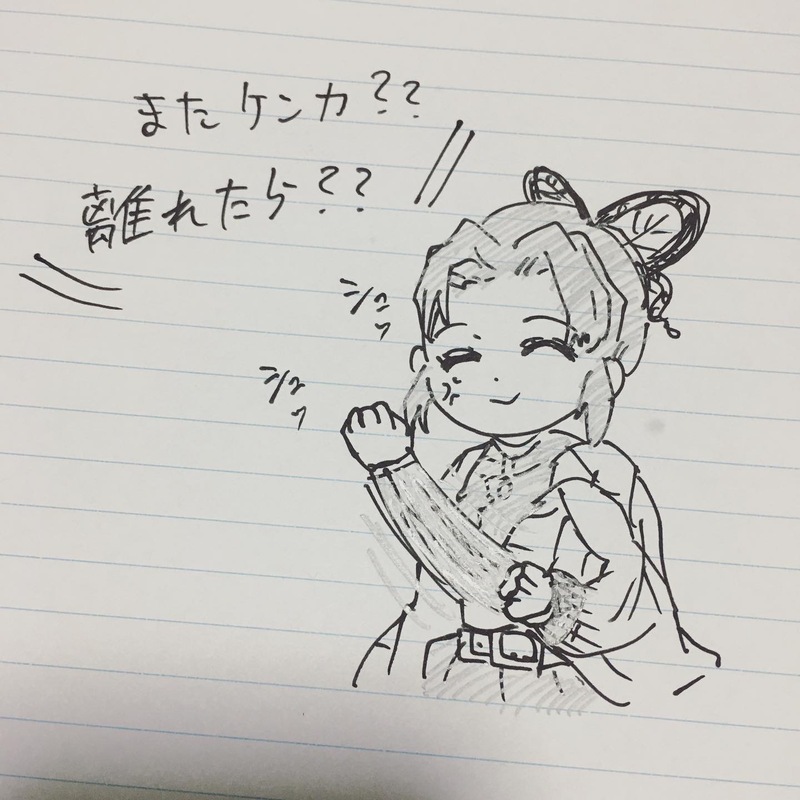 またケンカ??
離れたら??
シュッ
シュッ